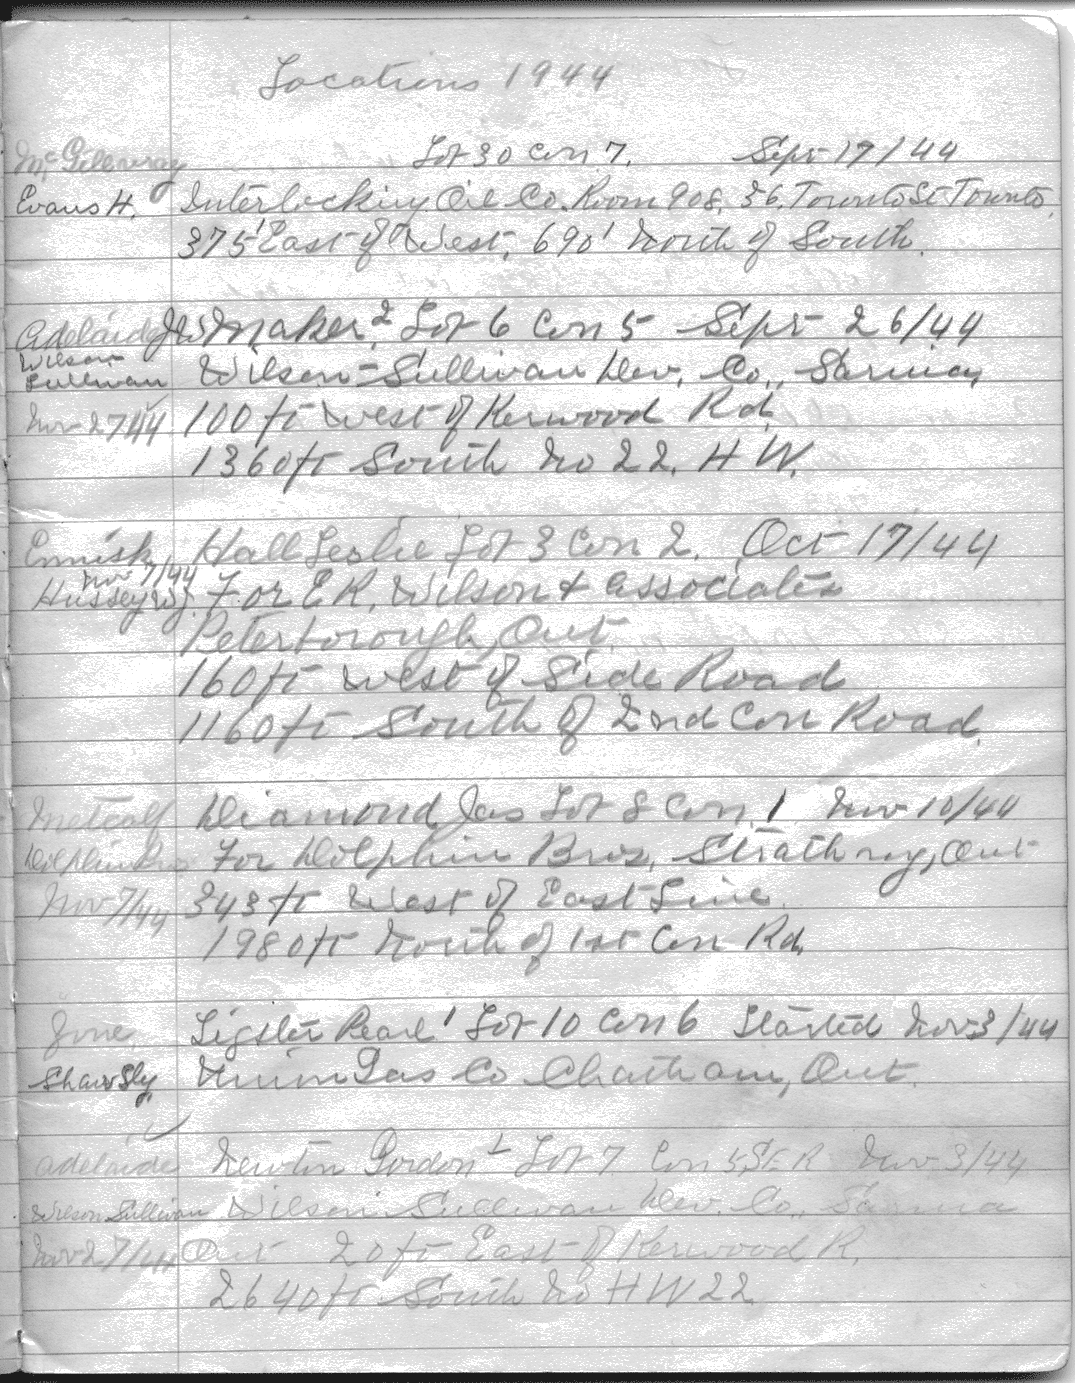 Locations 1944
McGillivray Lot 30 Con 7. Sept 17/44
Evans H. Interlocking Oil Co. Room 908, 36, Toronto St Toronto,
375' East of West, 690' North of South.
Adelaide Maker 2 Lot 6 Con 5 Sept 26/44
Wilson
Sullivan Wilson-Sullivan Dev. Co., Sarnia,
Nov 27/44 100 ft West of Kerwood Rd,
1360 ft South No 22. H W.
Ennisk Hall Leslie Lot 3 Con 2. Oct 17/44
Nov 7/44
Hussey W.J. For E R. Wilson & Associates
Peterborough, Ont.
160 ft West of Side Road
1160 ft South of 2nd Con Road.
Metcalf Diamond, Jas Lot 8 Con. 1 Nov 10/44
Dolphin Bros For Dolphin Bros, Strathroy, Ont
Nov 7/44 343 ft West of East Line.
1980 ft North of 1st Con Rd,
Zone Pearl 1 Lot 10 Con 6 Started Nov 3/44
Shaw Sly, Union Gas Co Chatham, Ont.
Adelaide Newton Gordon 1 Lot 7 Con 5 S E R Nov 3/44
Wilson Sullivan Wilson Sullivan Dev. Co., Sarnia
Nov 27/44 Ont 20 ft East of Kerwood R.
2640 ft South No H W 22